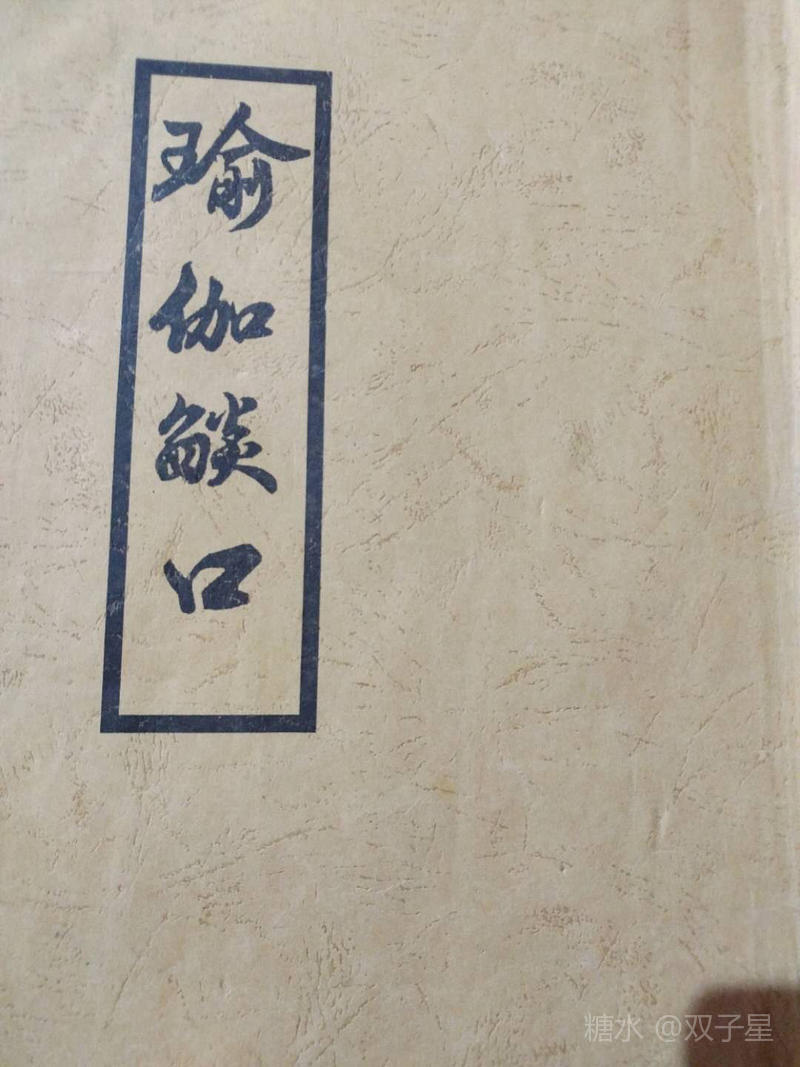 瑜伽燄口
糖水 @双子星